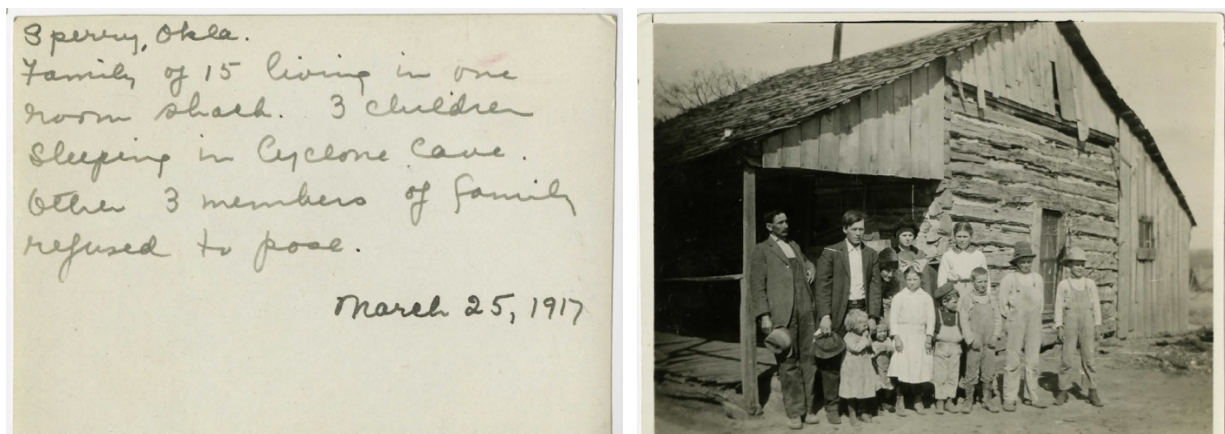 Sperry, Okla.
Family of 15 living in one
room shack. 3 children
sleeping in Cyclone Cave.
Other 3 members of family
refused to pose.
March 25, 1917